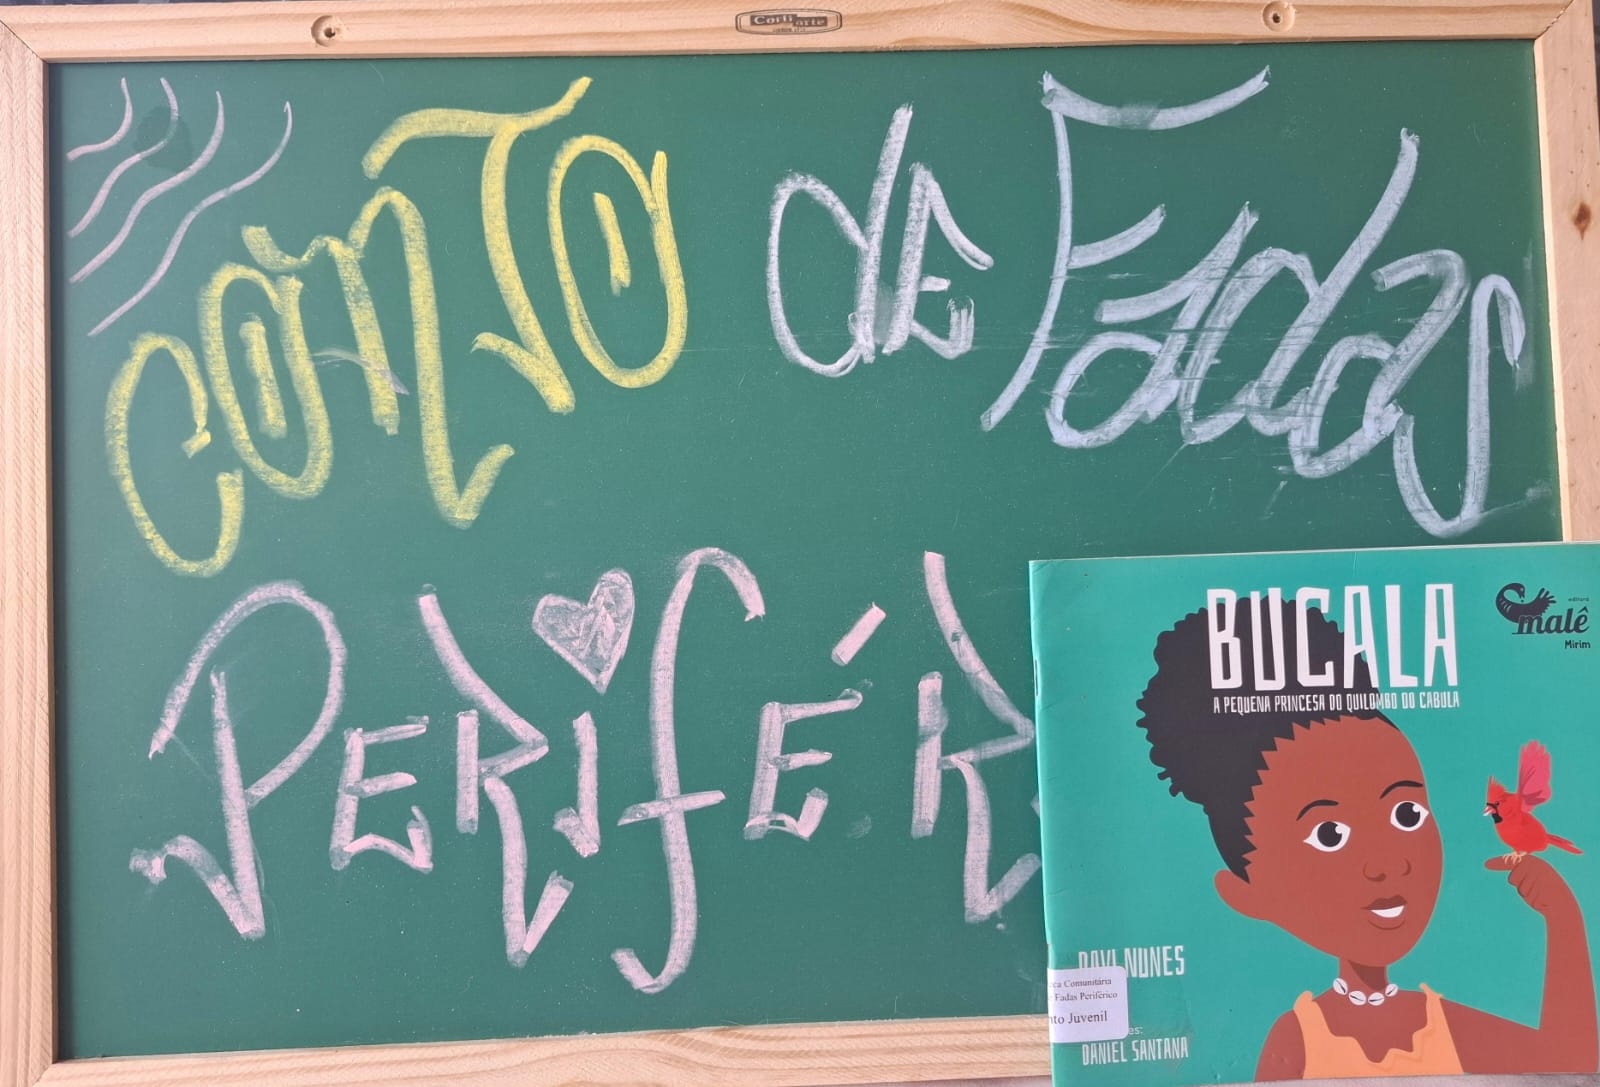 Corti arte
CONTO de Fadas
PERIFÉR
BUCALA
A PEQUENA PRINCESA DO QUILOMBO DO CABULA
editora
malê
Mirim
DAVI NUNES
eca Comunitária
e Fadas Periférico
nto Juvenil
es:
DANIEL SANTANA